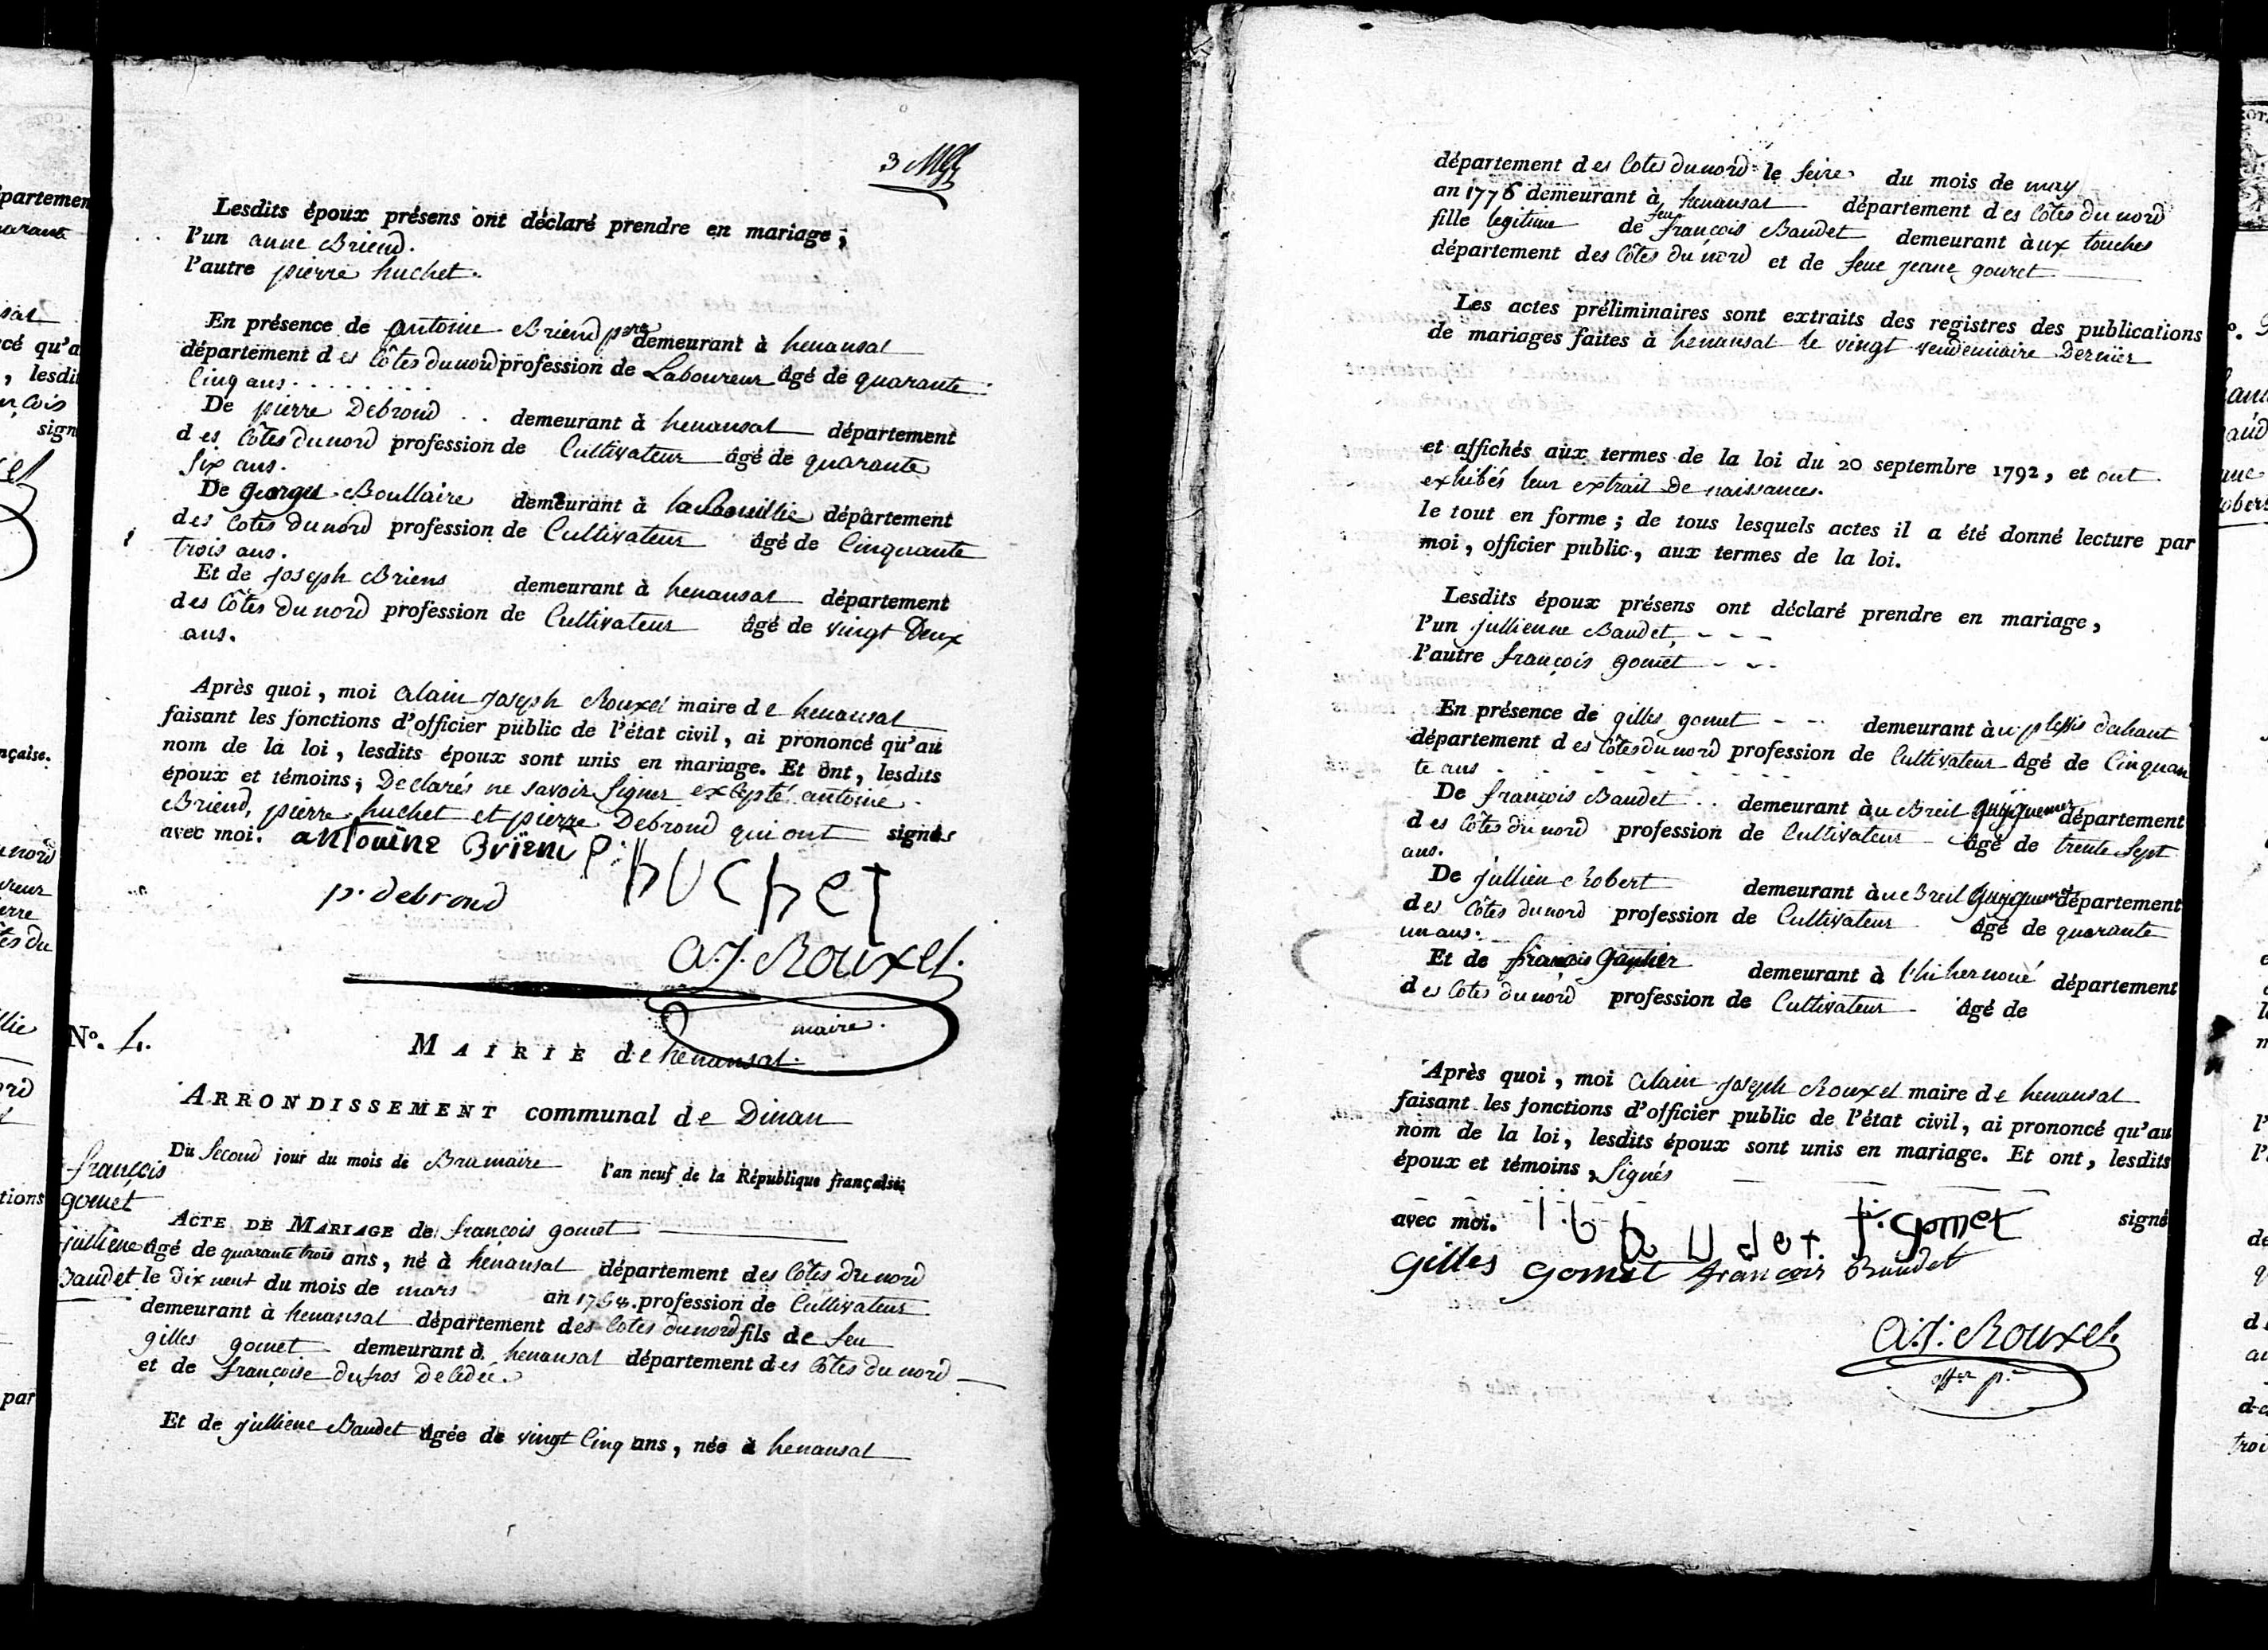 3
Lesdits époux présens ont déclaré prendre en mariage ;
l'un anne Briend.
l'autre pierre huchet.
En présence de antoine Briend pere demeurant à henansal
département des Côtes du nord profession de Laboureur âgé de quarante
Cinq ans.
De pierre Debroud demeurant à henansal département
des Côtes du nord profession de Cultivateur âgé de quarante
six ans.
De georges Boullaire demeurant à la Bouillie département
des Cotes du nord profession de Cultivateur âgé de Cinquante
trois ans.
Et de joseph Briens demeurant à henansal département
des Côtes du nord profession de Cultivateur âgé de vingt Deux
ans.
Après quoi, moi alain joseph Rouxel maire de henansal
faisant les fonctions d'officier public de l'état civil, ai prononcé qu'au
nom de la loi, lesdits époux sont unis en mariage. Et ont, lesdits
époux et témoins, Declarés ne savoir signer excepté antoine
Briend, pierre huchet et pierre Debroud qui ont signés
avec moi. antoine Briend P: huchet
p. debroud
a.j. Rouxel.
maire.
No. 4.
MAIRIE de henansal.
ARRONDISSEMENT communal de Dinan
Du second jour du mois de Brumaire l'an neuf de la République française.
françois
gomet
julliene
Baudet
ACTE DE MARIAGE de françois gomet
âgé de quarante trois ans, né à henansal département des Côtes du nord
le dix neuf du mois de mars an profession de Cultivateur
demeurant à henansal département des Cotes du nord fils de feu
gilles gomet demeurant à henansal département des Côtes du nord
et de françoise
Et de julliene Baudet âgée de vingt Cinq ans, née à henansal
département des Cotes du nord le seize du mois de may
an 1776 demeurant à henansal département des Côtes du nord
fille legitime de feu françois Baudet demeurant aux touches
département des Côtes du nord et de feue jeane gouret
Les actes préliminaires sont extraits des registres des publications
de mariages faites à henansal le vingt vendemiaire Dernier
et affichés aux termes de la loi du 20 septembre 1792, et ont
exhibés leur extrait de naissances.
le tout en forme ; de tous lesquels actes il a été donné lecture par
moi, officier public, aux termes de la loi.
Lesdits époux présens ont déclaré prendre en mariage,
l'un jullienne Baudet
l'autre françois gomet
En présence de gilles gomet demeurant àu plessis
département des Côtes du nord profession de Cultivateur âgé de Cinquan
te ans
De françois Baudet demeurant àu Breil département
des Côtes du nord profession de Cultivateur âgé de trente sept
ans.
De jullien Robert demeurant àu Breil département
des Côtes du nord profession de Cultivateur âgé de quarante
un ans.
Et de françois Gaultier demeurant à département
des Cotes du nord profession de Cultivateur âgé de
Après quoi, moi alain joseph Rouxel maire de henansal
faisant les fonctions d'officier public de l'état civil, ai prononcé qu'au
nom de la loi, lesdits époux sont unis en mariage. Et ont, lesdits
époux et témoins, signés
avec moi. f. gomet signé
gilles gomet françois Baudet
a.j. Rouxel
offer p.